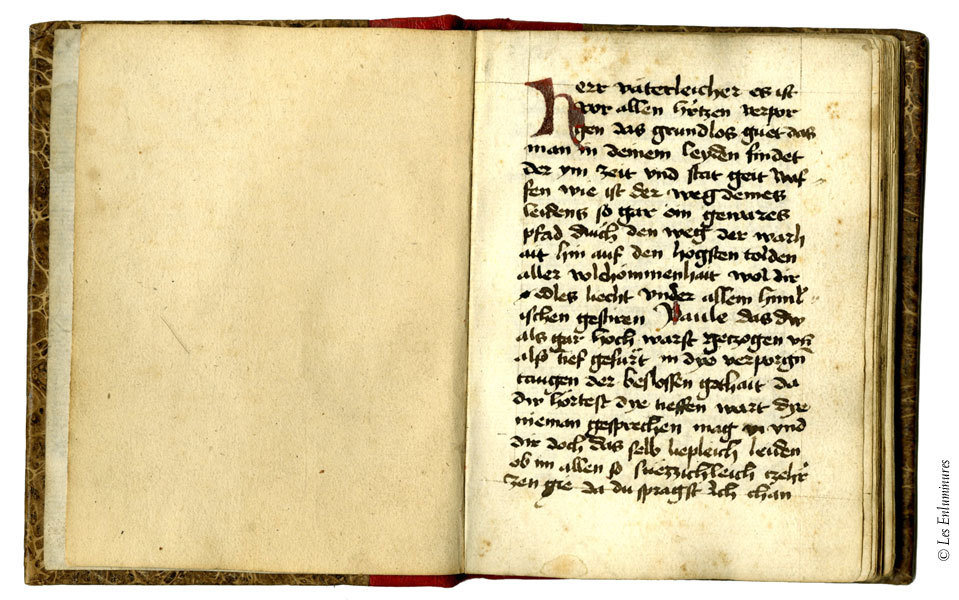 Herr väterleicher es ist
vor allen hertzen verpor
gen das grundlos guet das
man in deinem leyden findet
der ym zeit vnd stat geit
fen wie ist der weg deines
leidens so gar ein gewares
pfad durch den weg der warh
ait hin auf den hogsten tolden
aller volchommenhait wol dir
edles liecht vnder allem himl
ischen gestiren Paule das dw
als gar hoch warst getzogen vn̄
alss tief gefürt in dye verporgn̄
taugen der beslossen gothait da
dw hortest dye tieffen wart dye
nieman gesprechen mag vnd
dir doch das selb liepleich leiden
ob im allen so suezzichleich
zen gie da du spragst ich chan
© Les Enluminures